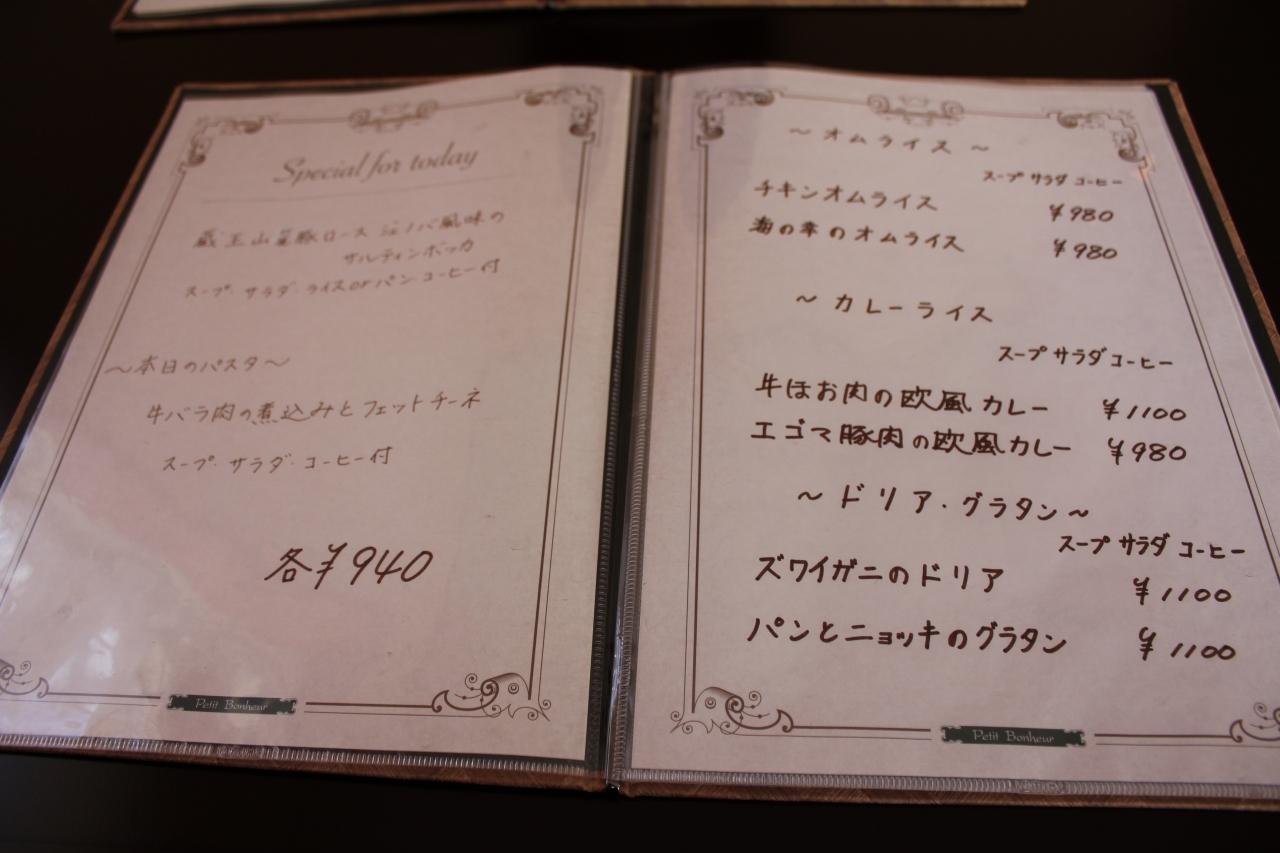 Special for today
蔵王山麓豚ロース ジェノバ風味の
サルティンボッカ
スープ・サラダ・ライスorパン コーヒー付
～本日のパスタ～
牛バラ肉の煮込みとフェットチーネ
スープ・サラダ・コーヒー付
各¥940
Petit Bonheur
～オムライス～
スープ サラダ コーヒー
チキンオムライス ¥980
海の幸のオムライス ¥980
～カレーライス
スープ サラダ コーヒー
牛ほお肉の欧風カレー ¥1100
エゴマ豚肉の欧風カレー ¥980
～ドリア・グラタン～
スープ サラダ コーヒー
ズワイガニのドリア ¥1100
パンとニョッキのグラタン ¥1100
Petit Bonheur